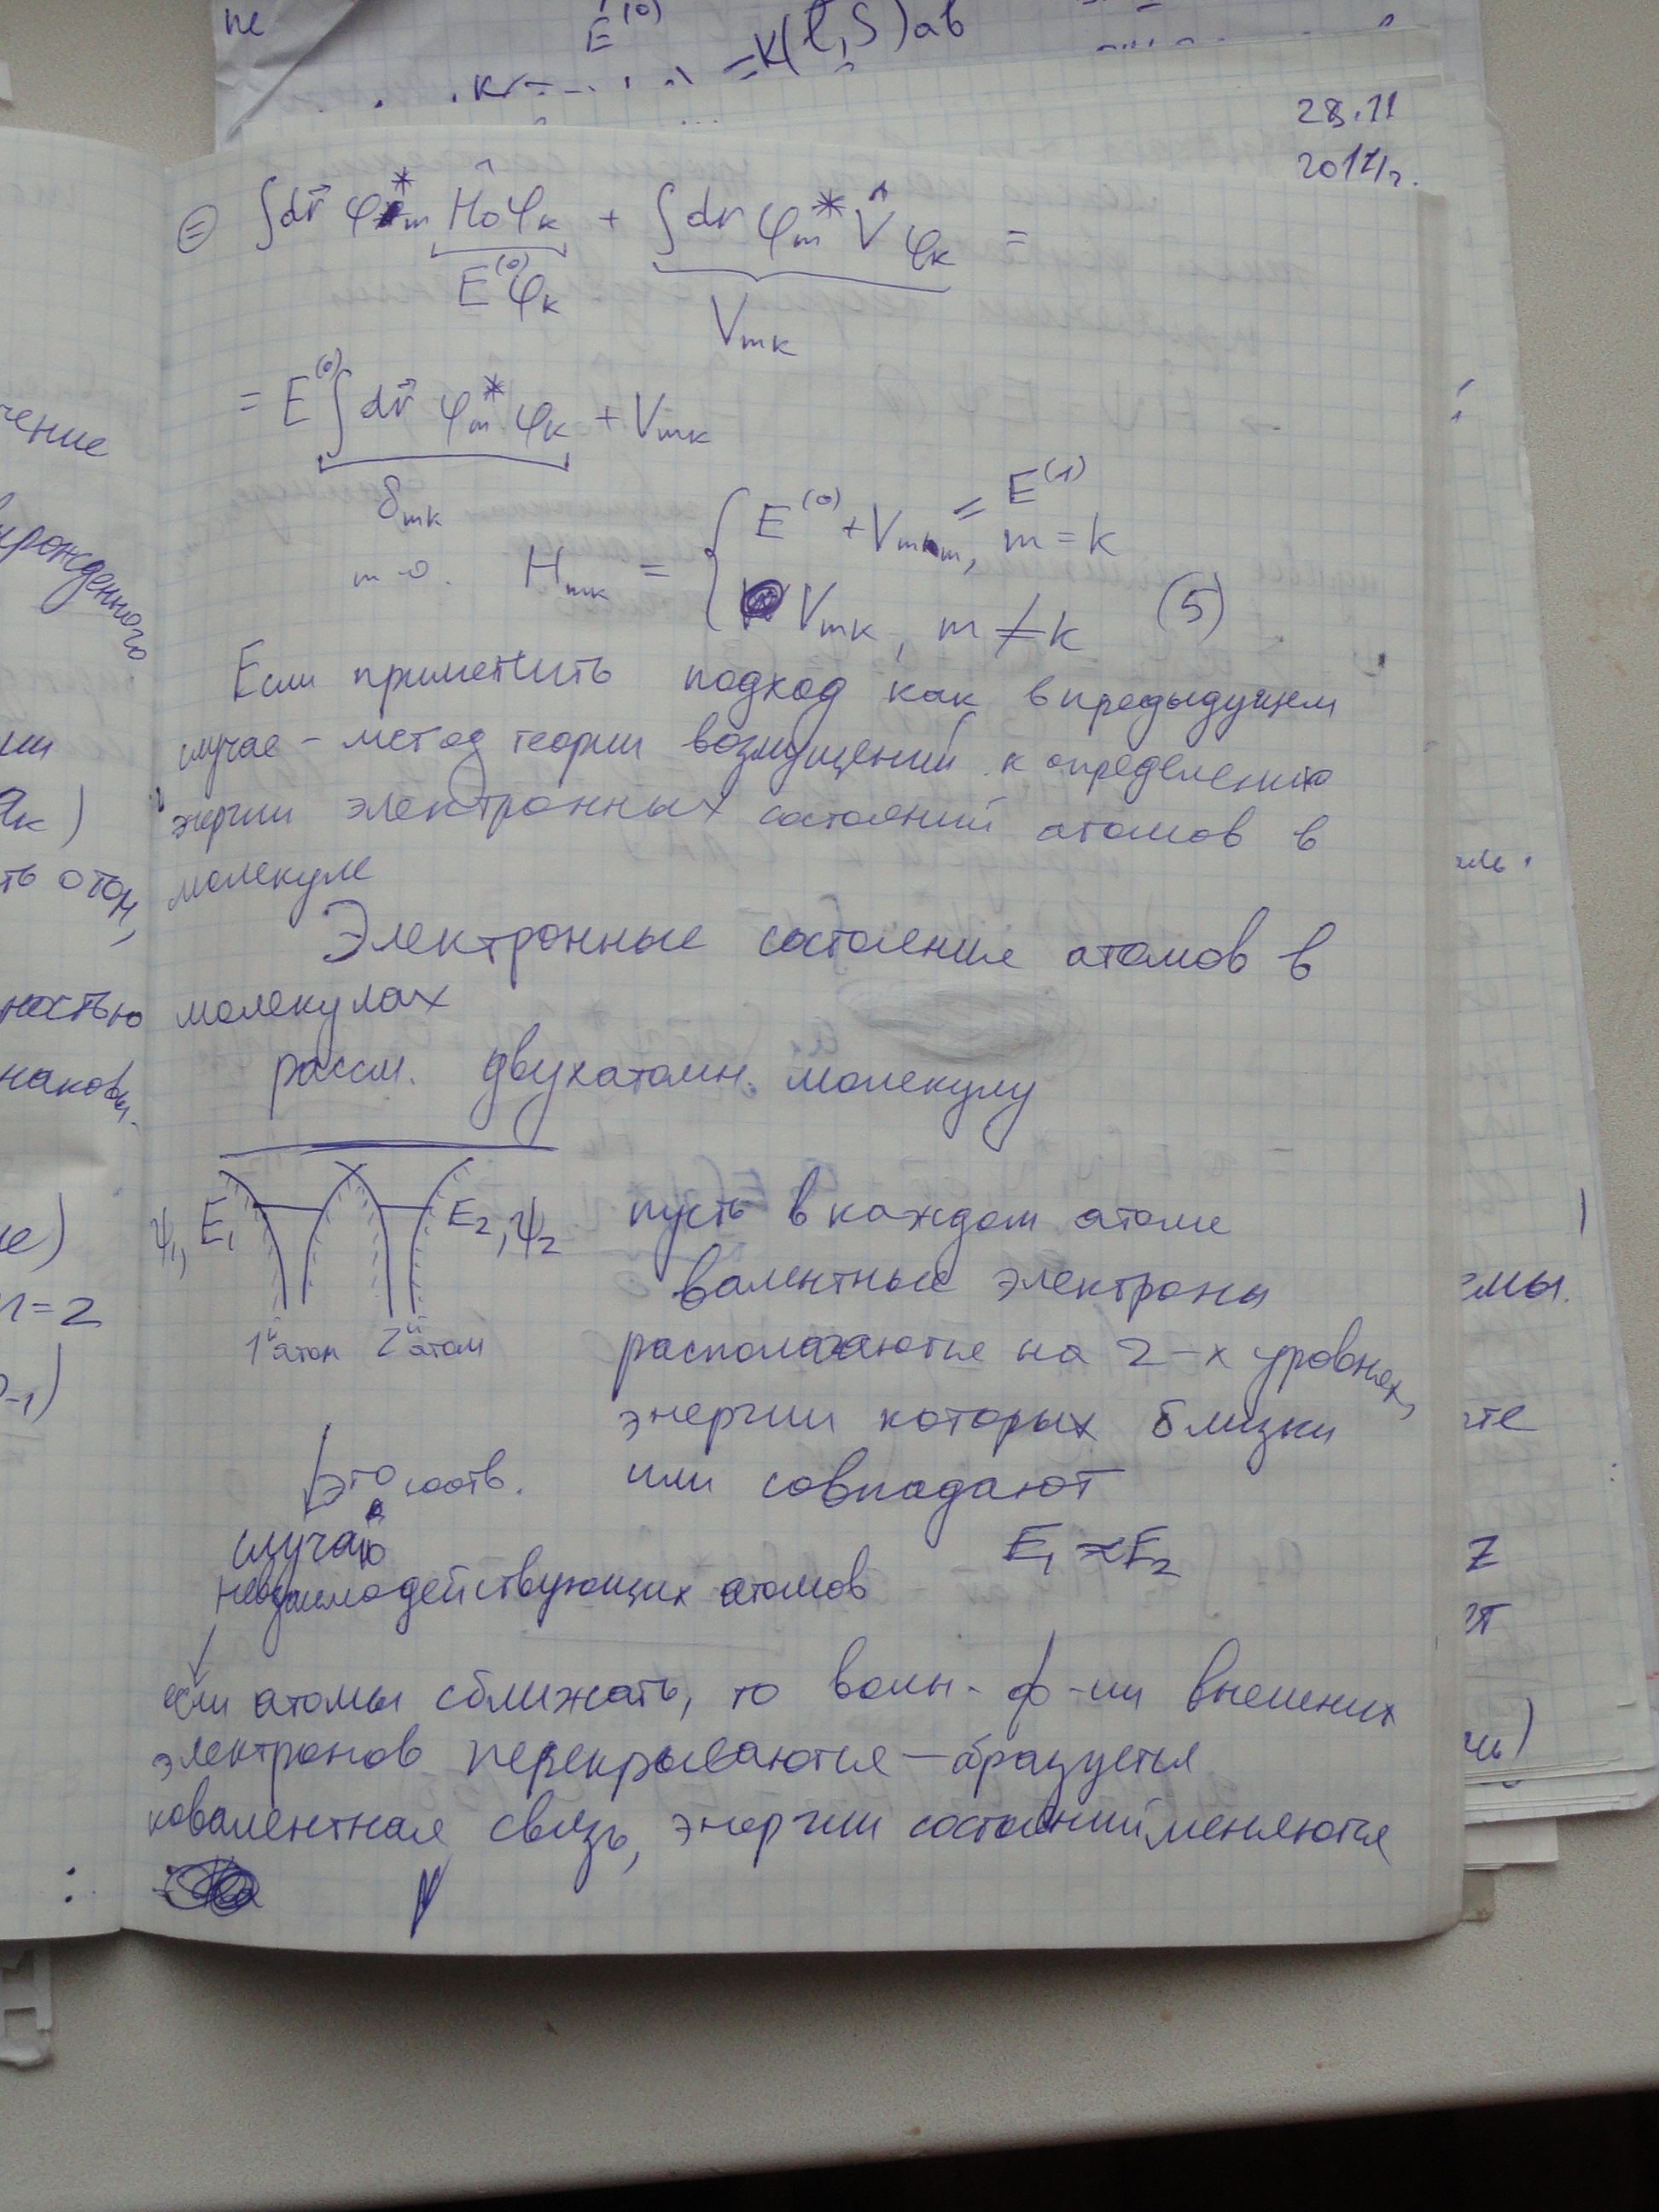 не
E^(0)
= K(l, S) ab
28.11
2017г.
⊜ ∫dr⃗ φ*_m Ĥ₀φ_k + ∫dr φ_m* V̂ φ_k =
E^(0)φ_k
V_mk
= E^(0) ∫dr⃗ φ_m* φ_k + V_mk
δ_mk
H_mk = { E^(0) + V_mm = E^(1), m = k
V_mk, m ≠ k (5)
Если применить подход как в предыдущем
случае – метод теории возмущений к определению
энергии электронных состояний атомов в
молекуле
Электронные состояния атомов в
молекулах
рассм. двухатомн. молекулу
ψ₁, E₁ E₂, ψ₂
1й атом 2й атом
пусть в каждом атоме
валентные электроны
располагаются на 2-х уровнях,
энергии которых близки
или совпадают
E₁ ≈ E₂
это соотв.
случаю
невзаимодействующих атомов
если атомы сближать, то волн. ф-ии внешних
электронов перекрываются – образуется
ковалентная связь, энергии состояний меняются
чение
вырожденного
ии
a_к)
ть отом,
ностью
наковы.
n=2
-1)
ль.
емы.